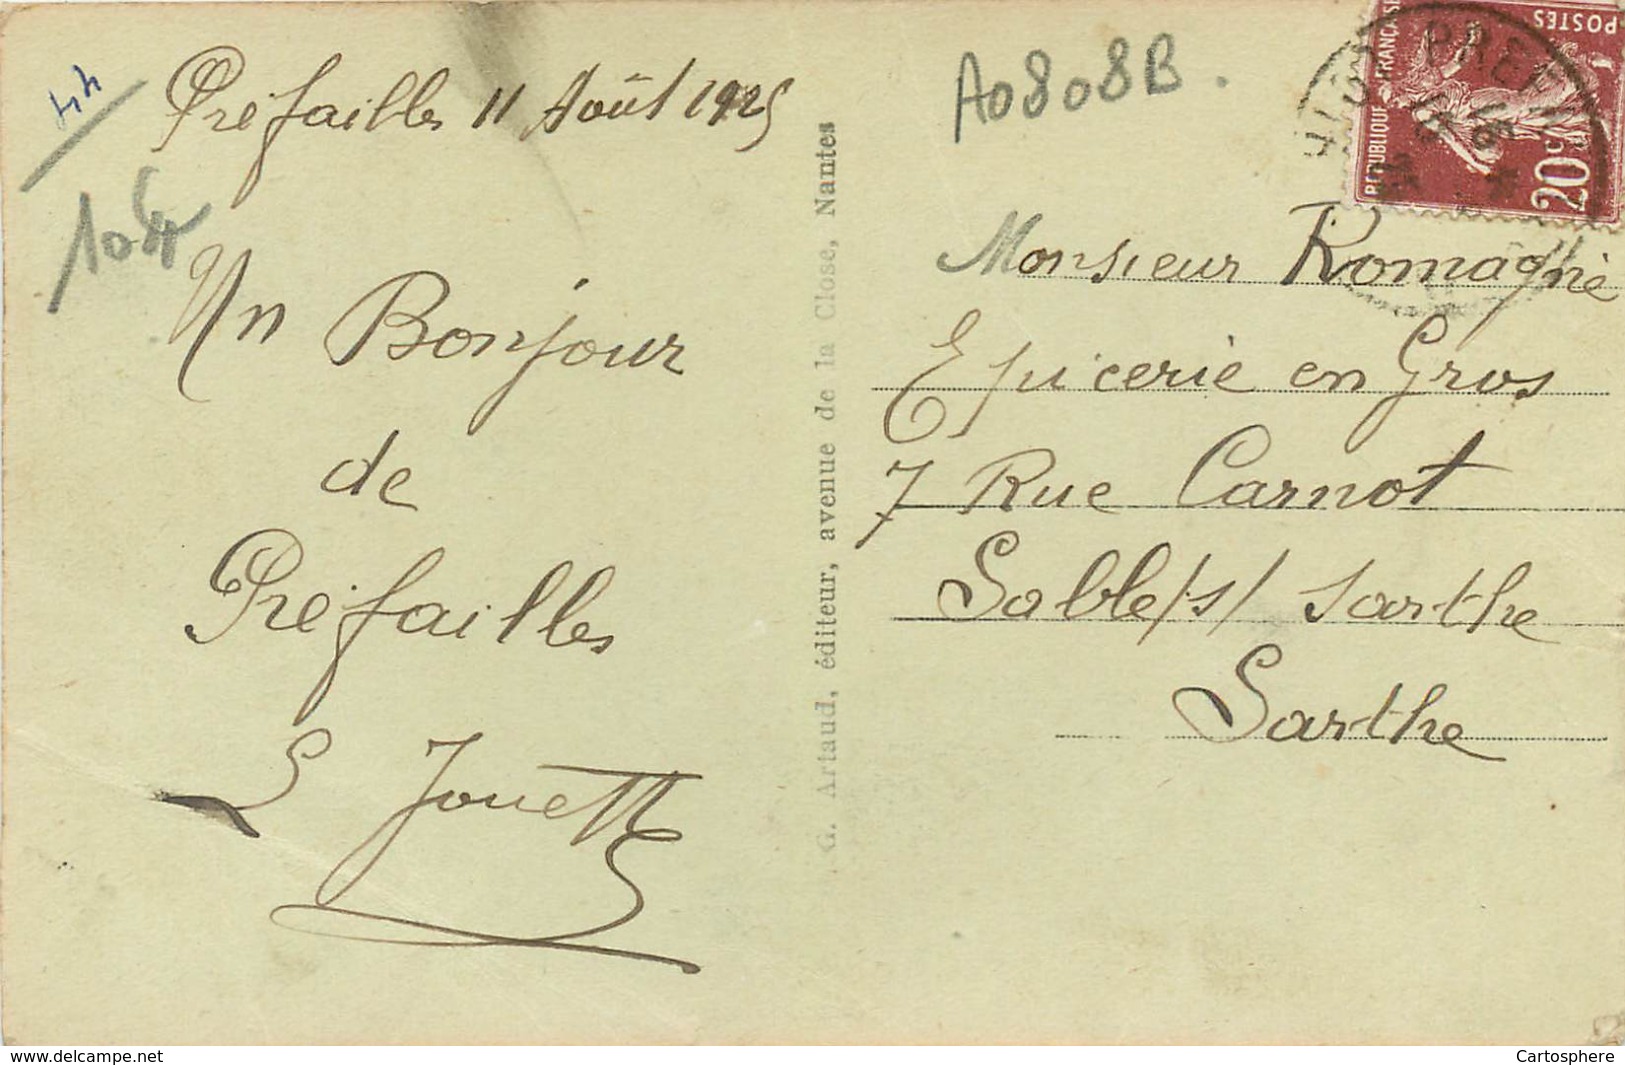 44
10
Préfailles 11 Août 1925
Un Bonjour
de
Préfailles
L Jouett
G. Artaud, éditeur, avenue de la Close, Nantes
A0808B.
RÉPUBLIQUE FRANÇAISE
POSTES
20c
PREFAILLES
Monsieur Romagné
Epicerie en Gros
7 Rue Carnot
Sable/s/ Sarthe
Sarthe
www.delcampe.net
Cartosphere